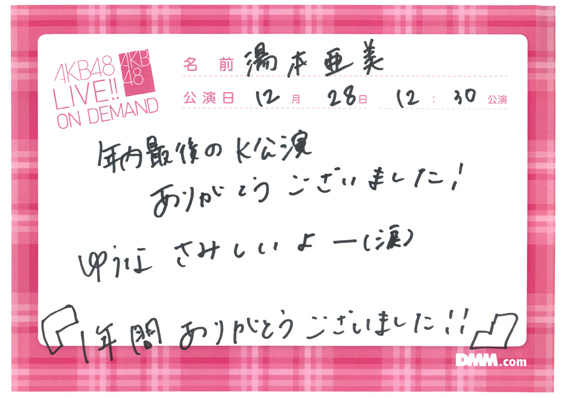 AKB48
LIVE!!
ON DEMAND
AKB
48
名前 湯本亜美
公演日 12月 28日 12:30公演
年内最後のK公演
ありがとうございました!
ゆうな さみしいよー(涙)
『1年間 ありがとうございました!!』
DMM.com